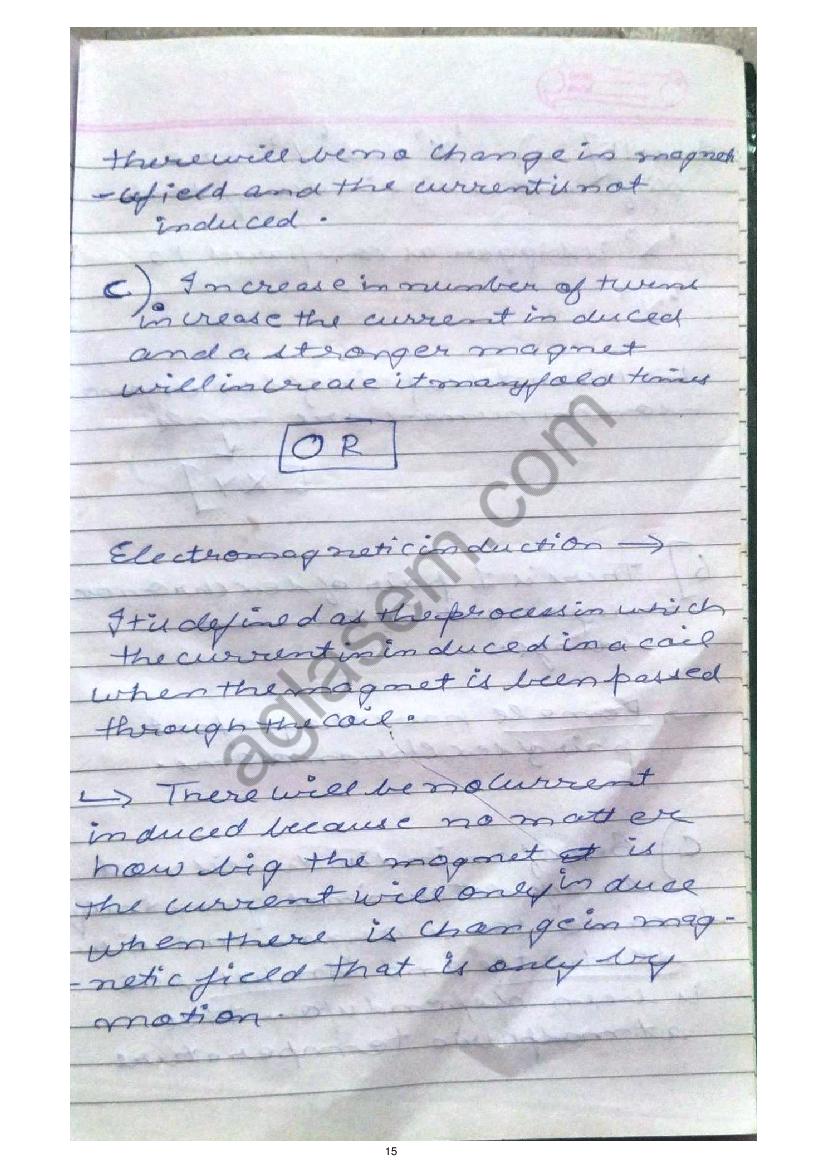 there will be no change in magnet
-ic field and the current is not
induced.
C) Increase in number of turns
increase the current induced
and a stronger magnet
will increase it manyfold times
OR
Electromagnetic induction →
It is defined as the process in which
the current in induced in a coil
when the magnet is been passed
through the coil.
↳ There will be no current
induced because no matter
how big the magnet is
the current will only induce
when there is change in mag-
-netic field that is only by
motion.
aglasem.com
15